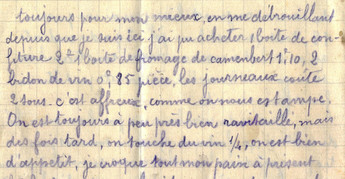 toujours pour mon mieux, en me débrouillant
depuis que je suis ici j'ai pu acheter 1 boite de con-
fiture 2f 1 boite de fromage de camembert 1f10, 2
bidon de vin 0f,85 pièce, les journeaux coute
2 sous. c'est affreux, comme on nous estampe.
On est toujours à peu près bien ravitaille, mais
des fois tard, on touche du vin 1/4, on est bien
d'appetit, je croque tout mon pain à présent